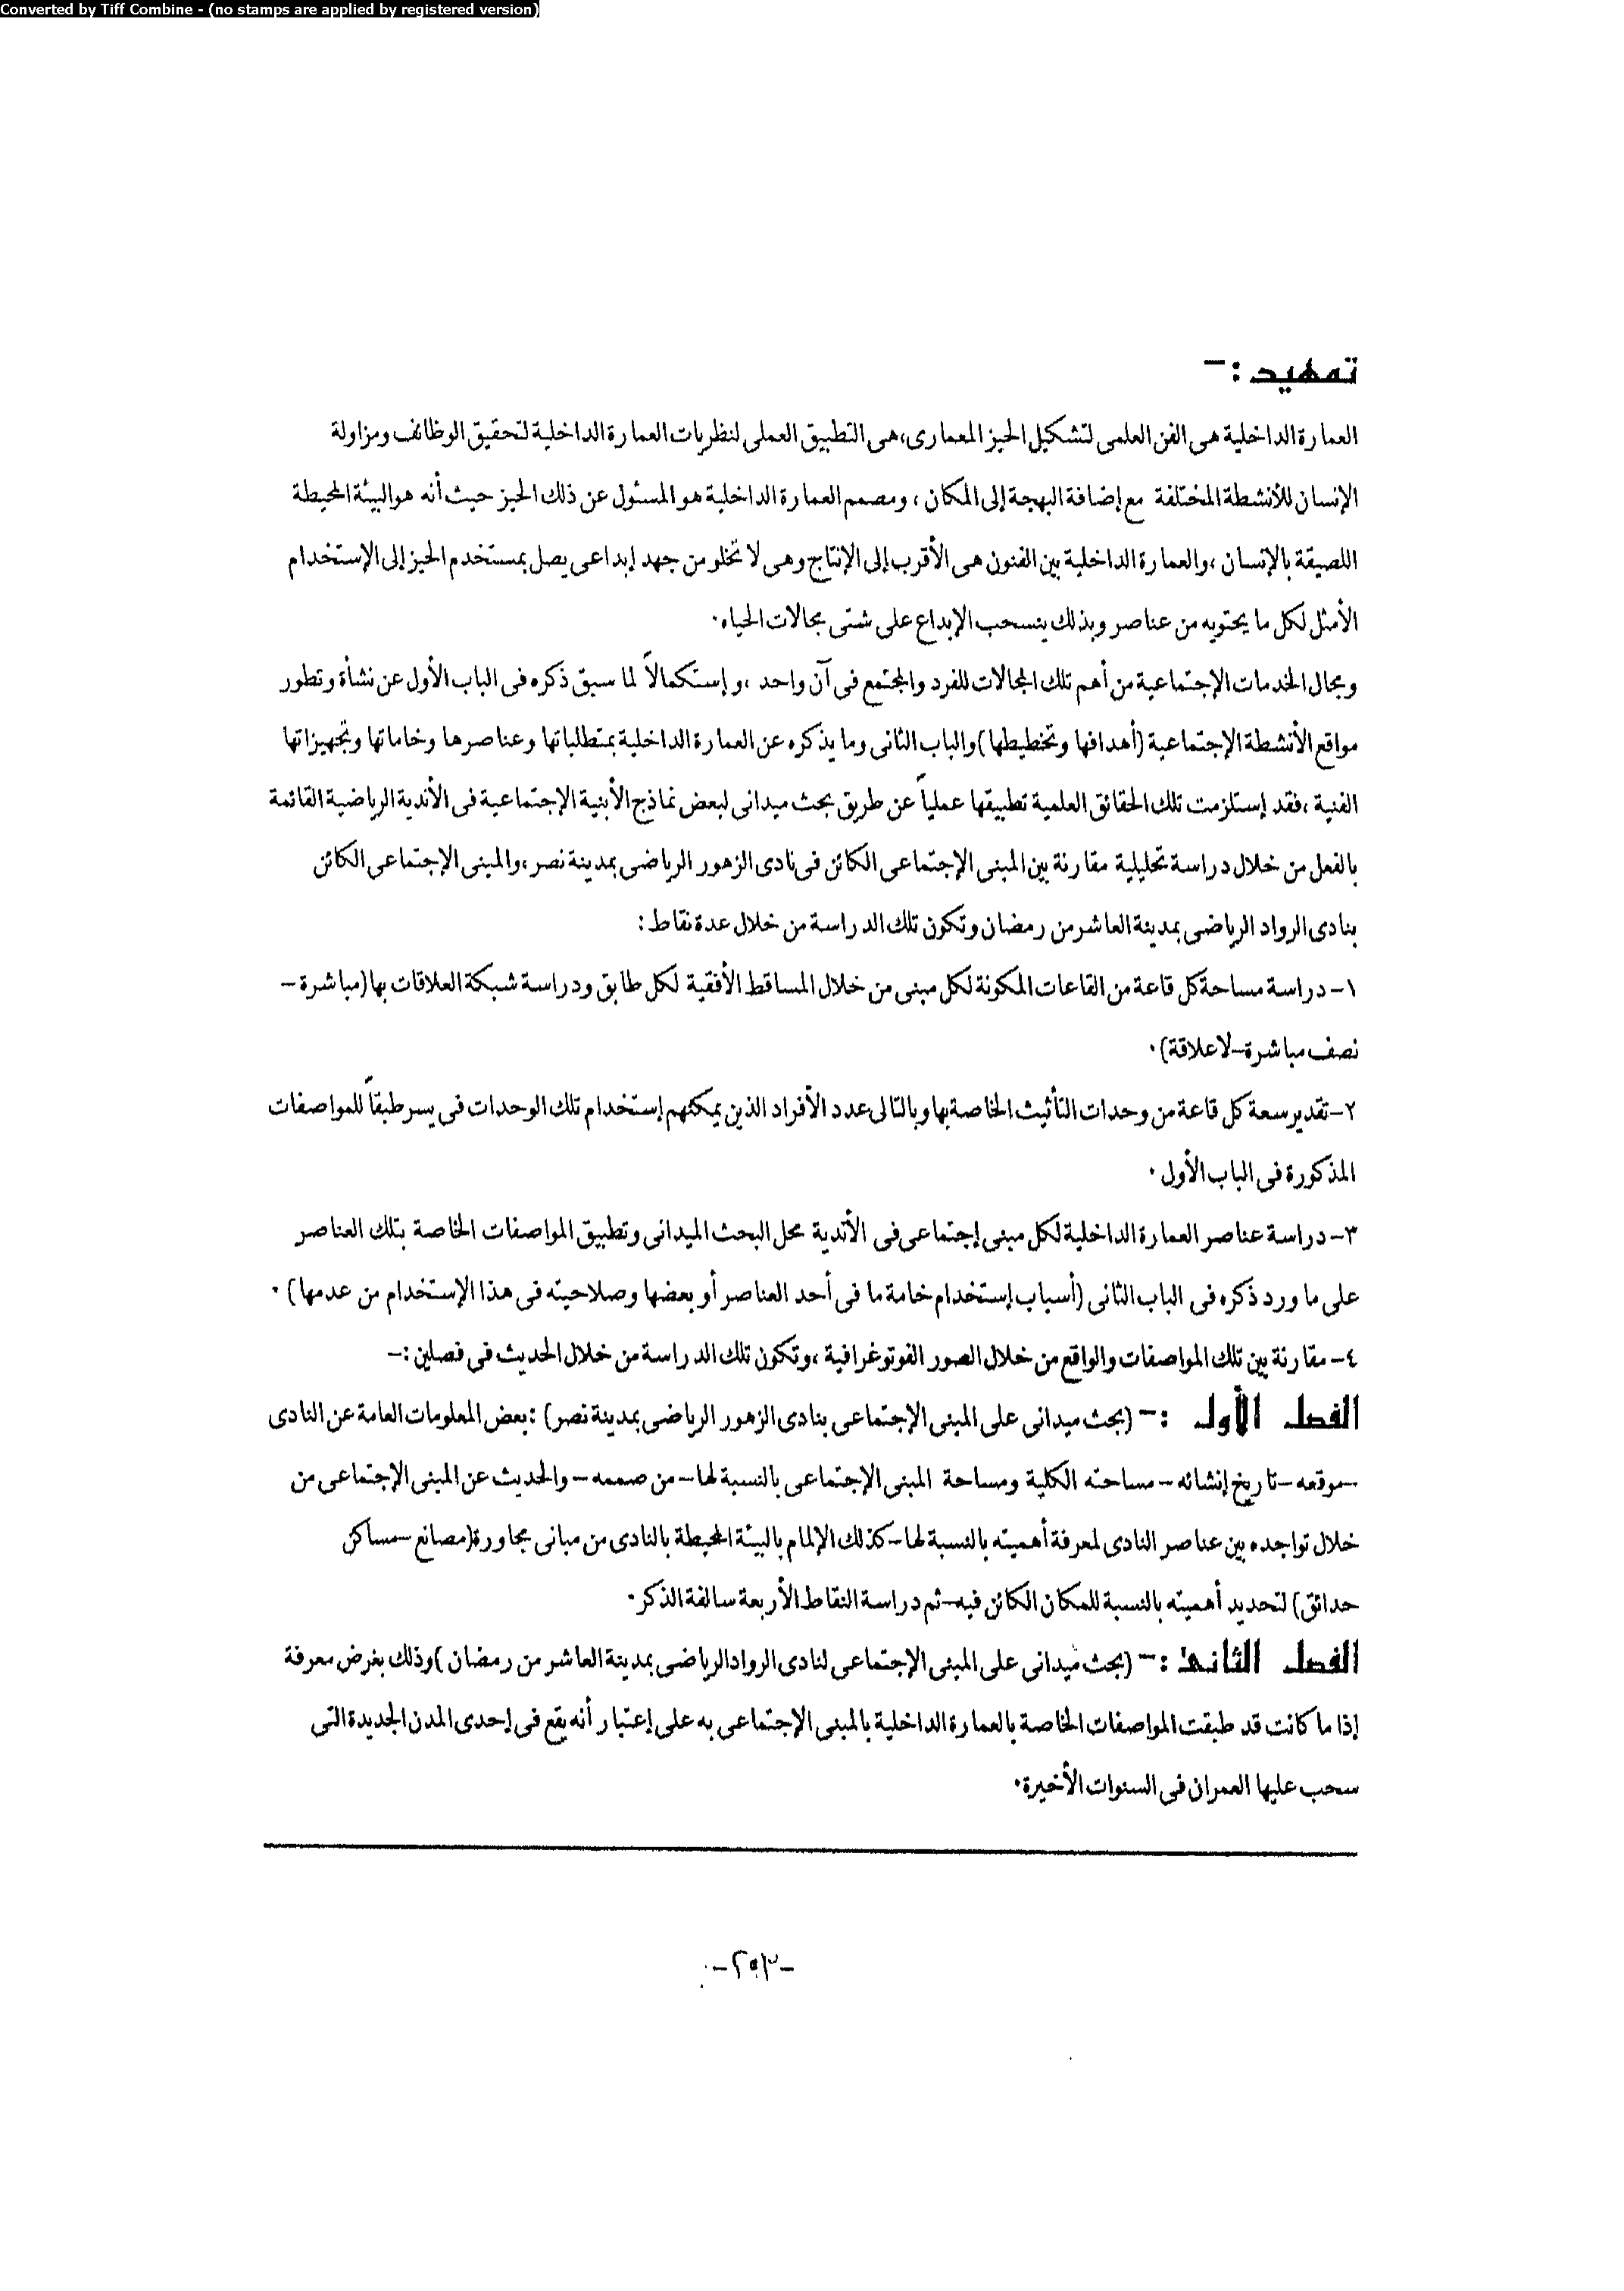 Converted by Tiff Combine - (no stamps are applied by registered version)
تمهيد :-
العمارة الداخلية هى الفن العلمى لتشكيل الحيز المعمارى،هى التطبيق العملى لنظريات العمارة الداخلية لتحقيق الوظائف ومزاولة
الإنسان للأنشطة المختلفة مع إضافة البهجة إلى المكان ، ومصمم العمارة الداخلية هو المسئول عن ذلك الحيز حيث أنه هو البيئة المحيطة
اللصيقة بالإنسان ،والعمارة الداخلية بين الفنون هى الأقرب إلى الإنتاج وهى لا تخلو من جهد إبداعى يصل بمستخدم الحيز إلى الإستخدام
الأمثل لكل ما يحتويه من عناصر وبذلك ينسحب الإبداع على شتى مجالات الحياه.
ومجال الخدمات الإجتماعية من أهم تلك المجالات للفرد والمجتمع فى آن واحد ،وإستكمالاً لما سبق ذكره فى الباب الأول عن نشأة وتطور
مواقع الأنشطة الإجتماعية (أهدافها وتخطيطها) والباب الثانى وما يذكره عن العمارة الداخلية بمتطلباتها وعناصرها وخاماتها وتجهيزاتها
الفنية ،فقد إستلزمت تلك الحقائق العلمية تطبيقها عملياً عن طريق بحث ميدانى لبعض نماذج الأبنية الإجتماعية فى الأندية الرياضية القائمة
بالفعل من خلال دراسة تحليلية مقارنة بين المبنى الإجتماعى الكائن فى نادى الزهور الرياضى بمدينة نصر،والمبنى الإجتماعى الكائن
بنادى الرواد الرياضى بمدينة العاشر من رمضان وتكون تلك الدراسة من خلال عدة نقاط :
١- دراسة مساحة كل قاعة من القاعات المكونة لكل مبنى من خلال المساقط الأفقية لكل طابق ودراسة شبكة العلاقات بها (مباشرة –
نصف مباشرة–لاعلاقة).
٢-تقدير سعة كل قاعة من وحدات التأثيث الخاصة بها وبالتالى عدد الأفراد الذين يمكنهم إستخدام تلك الوحدات فى يسر طبقاً للمواصفات
المذكورة فى الباب الأول .
٣- دراسة عناصر العمارة الداخلية لكل مبنى إجتماعى فى الأندية محل البحث الميدانى وتطبيق المواصفات الخاصة بتلك العناصر
على ما ورد ذكره فى الباب الثانى (أسباب إستخدام خامة ما فى أحد العناصر أو بعضها وصلاحيته فى هذا الإستخدام من عدمها) .
٤- مقارنة بين تلك المواصفات والواقع من خلال الصور الفوتوغرافية ،وتكون تلك الدراسة من خلال الحديث فى فصلين :–
الفصل الأول :- (بحث ميدانى على المبنى الإجتماعى بنادى الزهور الرياضى بمدينة نصر) :بعض المعلومات العامة عن النادى
–موقعه –تاريخ إنشائه – مساحته الكلية ومساحة المبنى الإجتماعى بالنسبة لها – من صممه – والحديث عن المبنى الإجتماعى من
خلال تواجده بين عناصر النادى لمعرفة أهميته بالنسبة لها –كذلك الإلمام بالبيئة المحيطة بالنادى من مبانى مجاورة (مصانع –مساكن
حدائق) لتحديد أهميته بالنسبة للمكان الكائن فيه–ثم دراسة النقاط الأربعة سالفة الذكر.
الفصل الثانى :- (بحث ميدانى على المبنى الإجتماعى لنادى الرواد الرياضى بمدينة العاشر من رمضان )وذلك بغرض معرفة
إذا ما كانت قد طبقت المواصفات الخاصة بالعمارة الداخلية بالمبنى الإجتماعى به على إعتبار أنه يقع فى إحدى المدن الجديدة التى
سحب عليها العمران فى السنوات الأخيرة.
-٢٩٣-